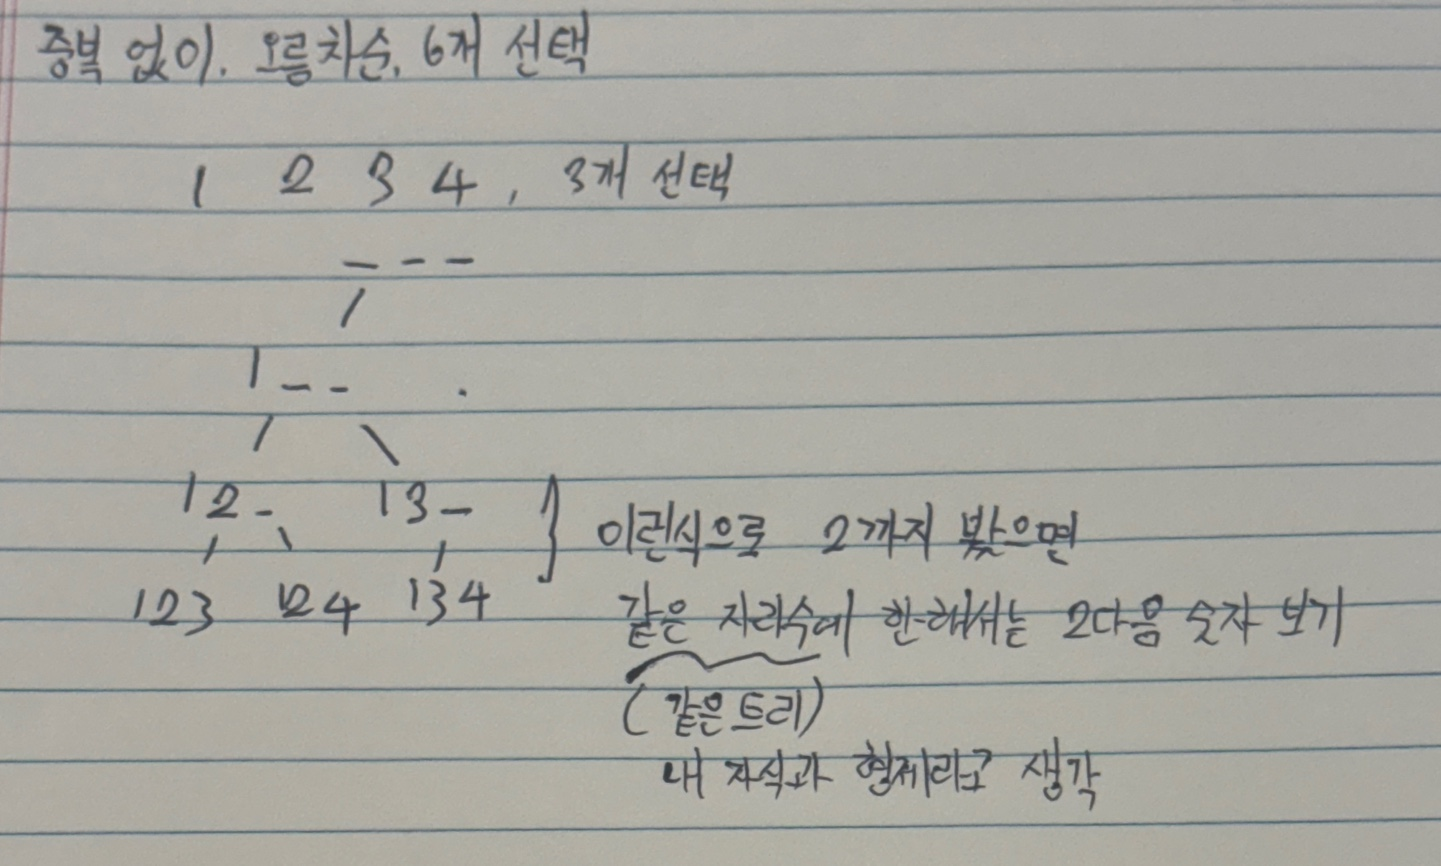 중복 없이. 오름차순. 6개 선택
1 2 3 4 , 3개 선택
_ _ _
1 _ _
12_ 13_
이런식으로 2까지 봤으면
123 124 134
같은 자리수에 한해서는 2다음 숫자 보기
(같은트리)
내 자식과 형제라고 생각